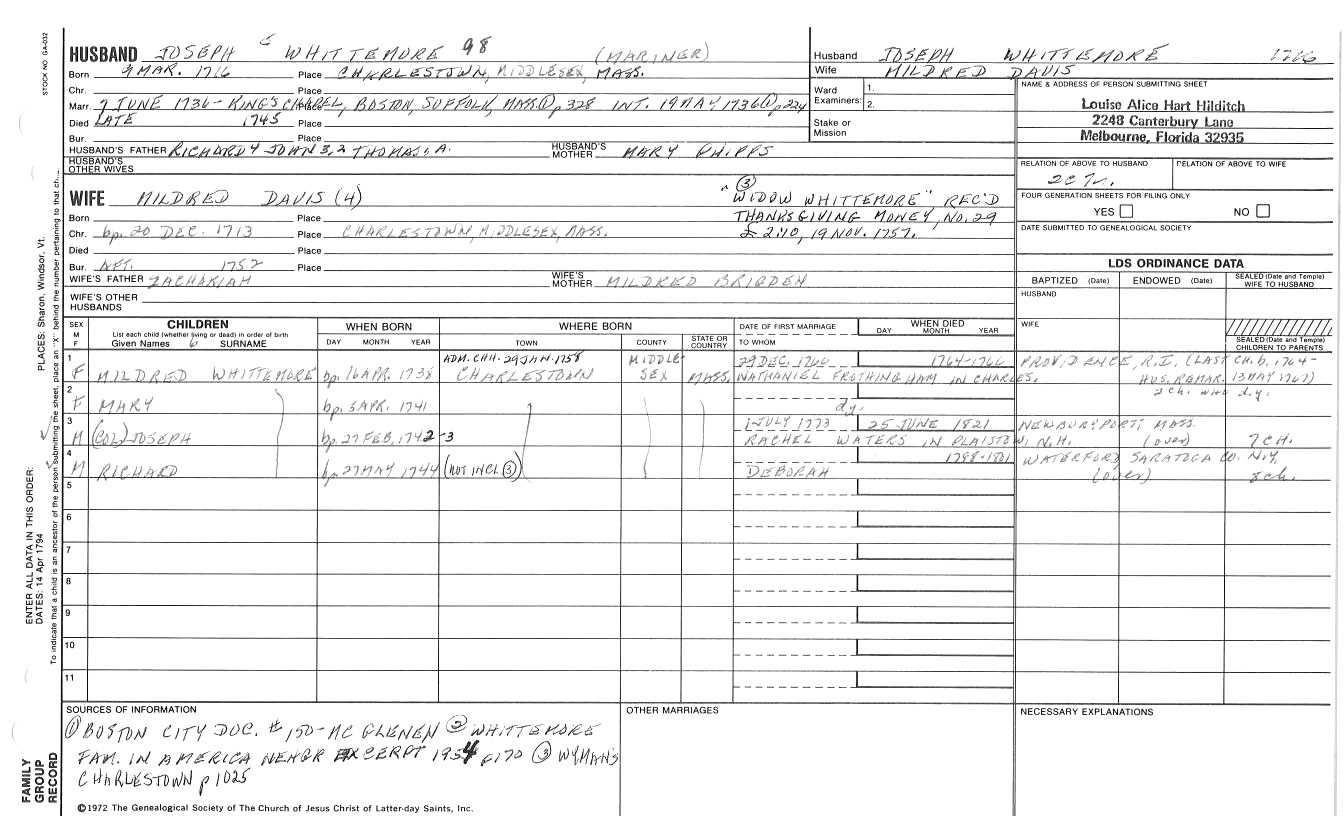 STOCK NO. GA-032
HUSBAND JOSEPH 5 WHITTEMORE 98 (MARINER)
Born 9 MAR. 1716 Place CHARLESTOWN, MIDDLESEX, MASS.
Chr. Place
Marr. 7 JUNE 1736 - KING'S CHAPEL, BOSTON, SUFFOLK, MASS ① p 328 INT. 19 MAY 1736 ① p 224
Died LATE 1745 Place
Bur. Place
HUSBAND'S FATHER RICHARD 4 JOHN 3,2 THOMAS 1. A. HUSBAND'S MOTHER MARY PHIPPS
HUSBAND'S OTHER WIVES
Husband JOSEPH WHITTEMORE 1766
Wife MILDRED DAVIS
Ward Examiners: 1. 2.
Stake or Mission
NAME & ADDRESS OF PERSON SUBMITTING SHEET
Louise Alice Hart Hilditch
2248 Canterbury Lane
Melbourne, Florida 32935
RELATION OF ABOVE TO HUSBAND RELATION OF ABOVE TO WIFE
2C 7r.
FOUR GENERATION SHEETS FOR FILING ONLY
YES NO
DATE SUBMITTED TO GENEALOGICAL SOCIETY
WIFE MILDRED DAVIS (4)
③
"WIDOW WHITTEMORE" REC'D
THANKSGIVING MONEY, NO. 29
£ 2:10, 19 NOV. 1757.
Born Place
Chr. bp. 20 DEC. 1713 Place CHARLESTOWN, MIDDLESEX, MASS.
Died Place
Bur. AFT. 1752 Place
WIFE'S FATHER ZACHARIAH WIFE'S MOTHER MILDRED BRIGDEN
WIFE'S OTHER HUSBANDS
LDS ORDINANCE DATA
BAPTIZED (Date) ENDOWED (Date) SEALED (Date and Temple) WIFE TO HUSBAND
HUSBAND
WIFE
SEALED (Date and Temple) CHILDREN TO PARENTS
SEX M F CHILDREN WHEN BORN WHERE BORN DATE OF FIRST MARRIAGE WHEN DIED
List each child (whether living or dead) in order of birth
Given Names 6 SURNAME DAY MONTH YEAR TOWN COUNTY STATE OR COUNTRY TO WHOM DAY MONTH YEAR
1 ADM. CHH. 29 JAN. 1758 MIDDLE- 29 DEC. 1760 1764-1766 PROVIDENCE, R.I. (LAST CH. b. 1764-
F MILDRED WHITTEMORE bp. 16 APR. 1738 CHARLESTOWN SEX MASS. NATHANIEL FROTHINGHAM IN CHARLES. HUS. REMAR. 13 MAY 1767)
2 2 ch. who d.y.
F MARY bp. 5 APR. 1741 d.y.
3 1 JULY 1773 25 JUNE 1821 NEWBURYPORT, MASS.
M (COL) JOSEPH bp. 27 FEB. 1742-3 RACHEL WATERS IN PLAISTOW, N.H. (over) 7 CH.
4 1798-1801 WATERFORD, SARATOGA CO. N.Y.
M RICHARD bp. 27 MAY 1744 (NOT INCL ③) DEBORAH (over) 8 ch.
5
6
7
8
9
10
11
SOURCES OF INFORMATION OTHER MARRIAGES NECESSARY EXPLANATIONS
① BOSTON CITY DOC. # 150 - MC GLENEN ② WHITTEMORE
FAM. IN AMERICA NEHGR EXCERPT 1954 p 170 ③ WYMAN'S
CHARLESTOWN p 1025
©1972 The Genealogical Society of The Church of Jesus Christ of Latter-day Saints, Inc.
FAMILY GROUP RECORD
ENTER ALL DATA IN THIS ORDER:
DATES: 14 Apr 1794 PLACES: Sharon, Windsor, Vt.
To indicate that a child is an ancestor of the person submitting the sheet, place an "X" behind the number pertaining to that ch.